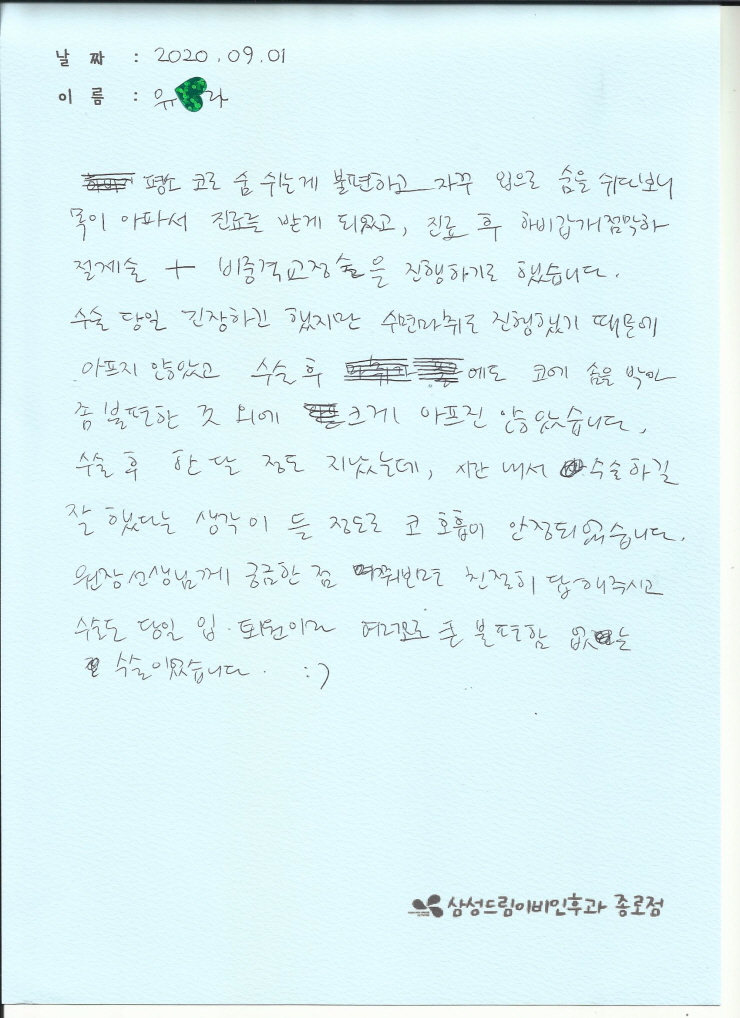 날 짜 : 2020.09.01
이 름 : 유 라
평소 코로 숨 쉬는게 불편하고 자꾸 입으로 숨을 쉬다보니
목이 아파서 진료를 받게 되었고, 진료 후 하비갑개점막하
절제술 + 비중격교정술을 진행하기로 했습니다.
수술 당일 긴장하긴 했지만 수면마취로 진행했기 때문에
아프지 않았고 수술 후 에도 코에 솜을 박아
좀 불편한 것 외에 크게 아프진 않았습니다.
수술 후 한 달 정도 지났는데, 시간 내서 수술하길
잘 했다는 생각이 들 정도로 코 호흡이 안정되었습니다.
원장선생님께 궁금한 점 여쭤볼때 친절히 답해주시고
수술도 당일 입·퇴원이라 여러모로 큰 불편함 없는
수술이었습니다. :)
삼성드림이비인후과 종로점